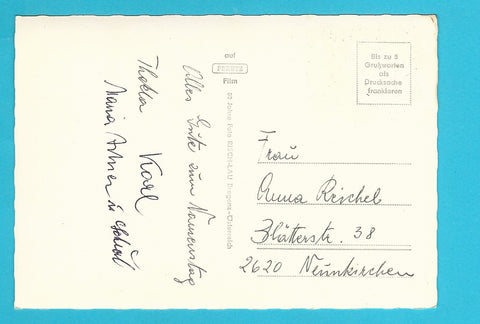 Alles Gute zum Namenstag
Thekla Karl
Maria
auf
PERUTZ
Film
60 Jahre Foto RISCH-LAU Bregenz-Österreich
Bis zu 5
Grußworten
als
Drucksache
frankieren
Frau
Anna Reichel
Blätterstr. 38
2620 Neunkirchen